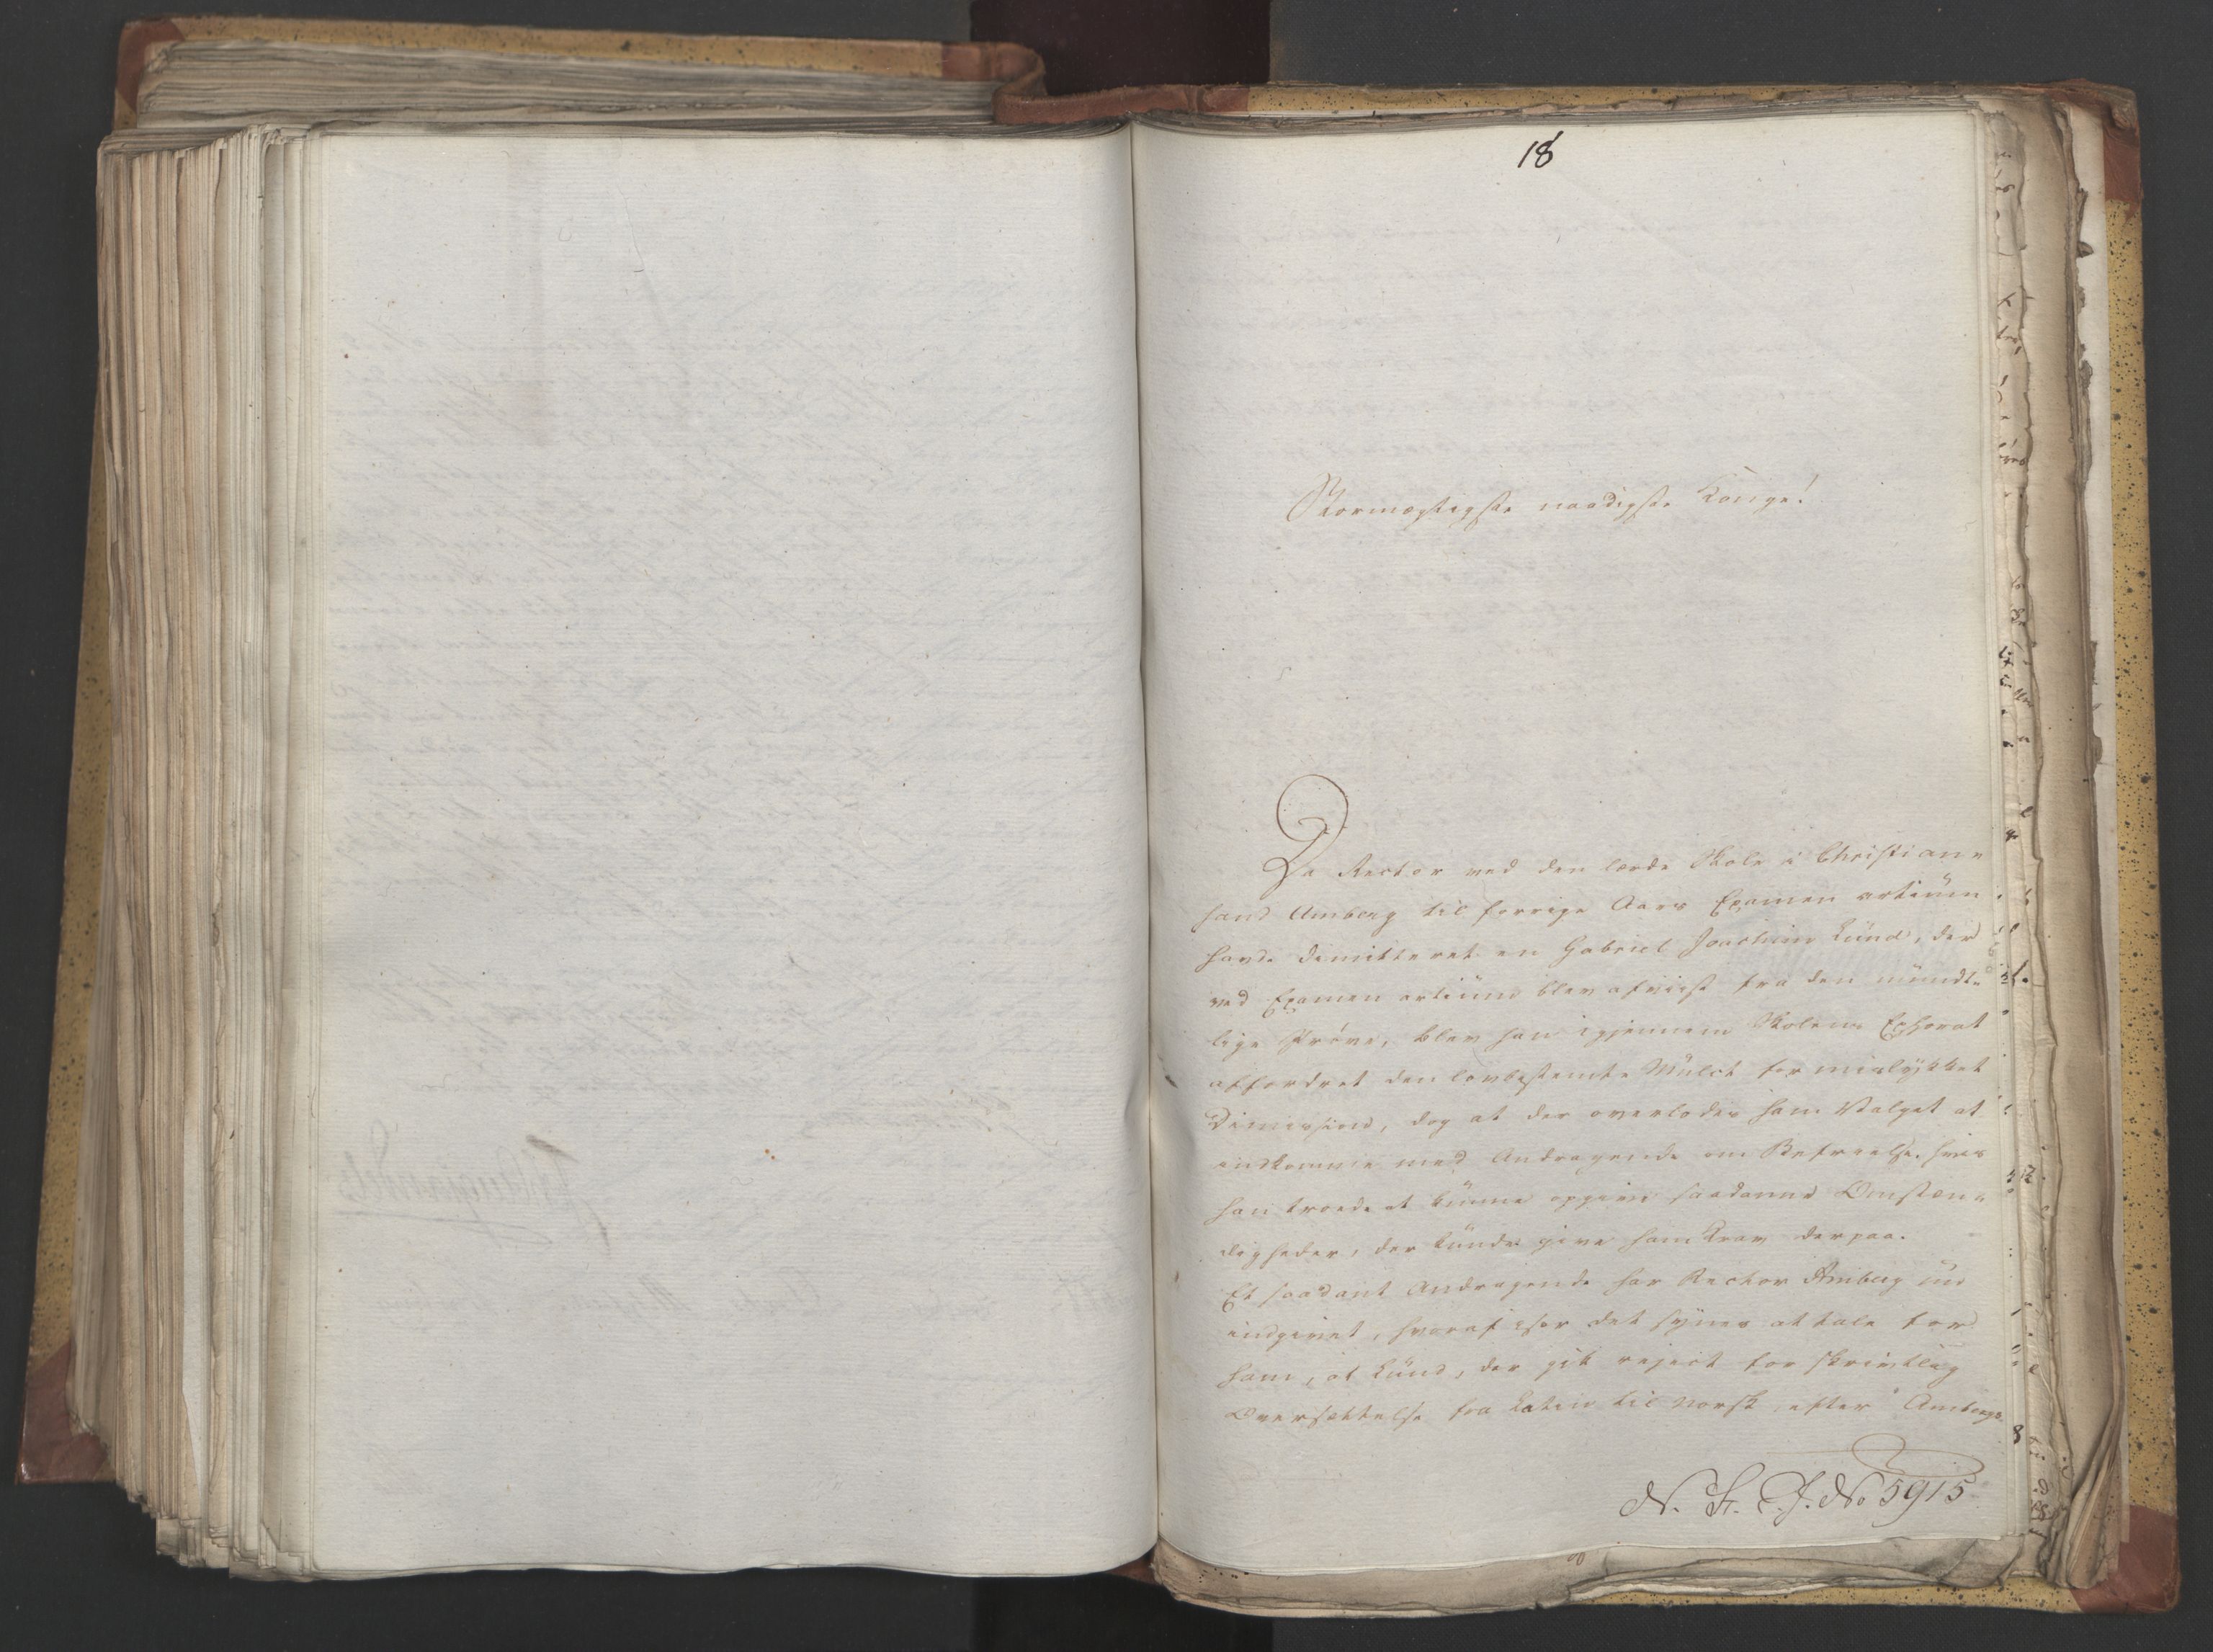 18
Stormægtigste naadigste Konge!
Da Rector ved den lærde Skole i Christian=
sand Amberg til forrige Aars Examen artium
havde dimitteret en Gabriel Joachim Lund, der
ved Examen artium blev afviist fra den mündt=
lige Prøve, blev han igjennem Skolens Ephorat
affordret den lovbestemte Mülct for mislykket
Dimission, dog at der overlodes ham Valget at
indkomme med Andragende om Befrielse, hvis
han troede at kunne opgive saadanne Omstæn=
digheder, der kunde give ham Krav derpaa.
Et saadant Andragende har Rector Amberg nu
indgivet, hvoraf især det synes at tale for
ham, at Lünd, der fik reject for skrivtlig
Oversættelse fra Latin til Norsk, efter Ambergs
N. S. J. No 5915